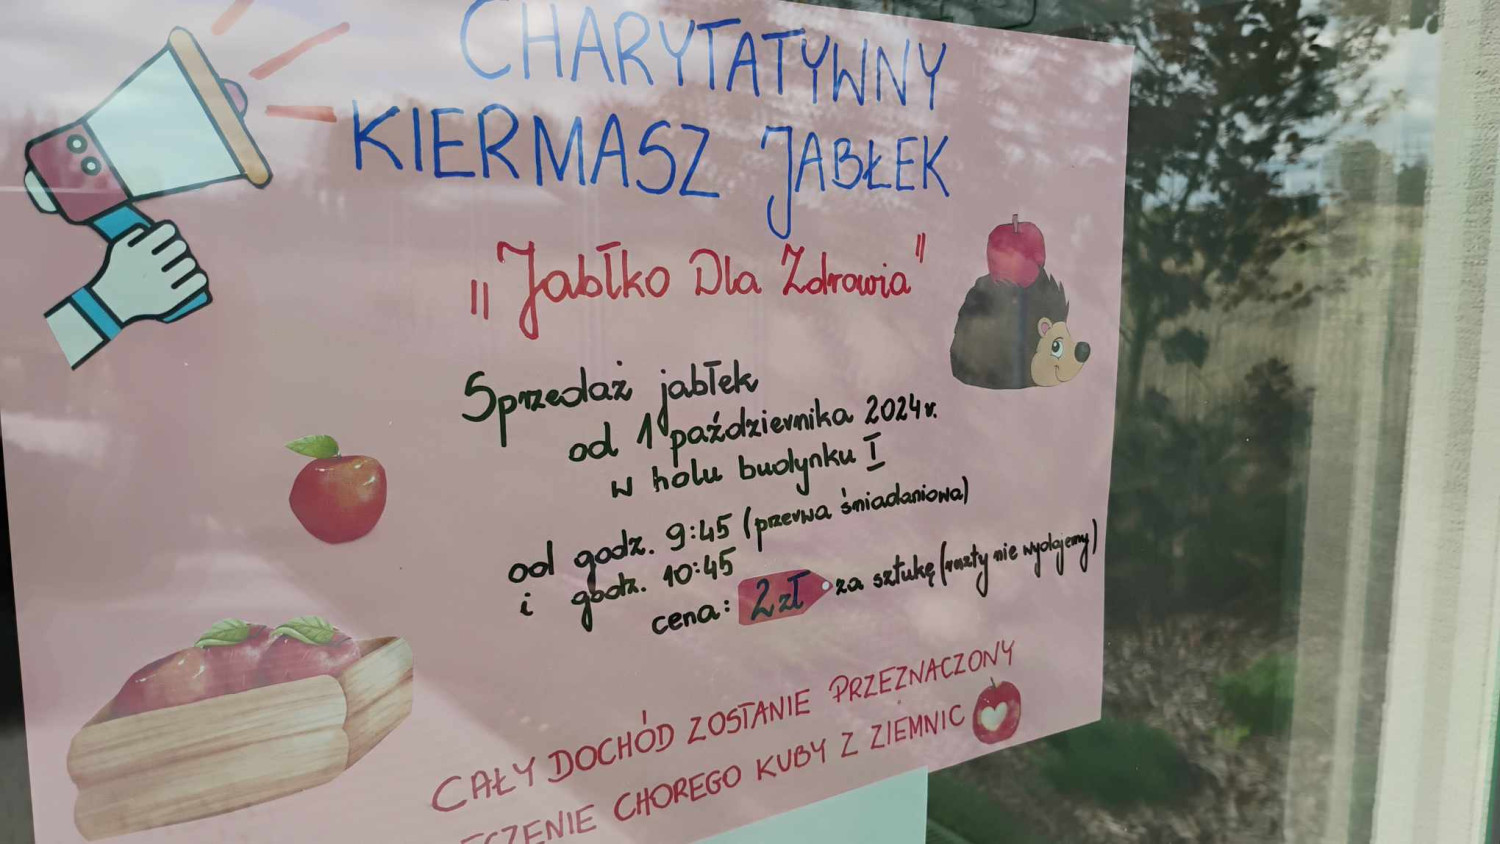 CHARYTATYWNY
KIERMASZ JABŁEK
"Jabłko Dla Zdrowia"
Sprzedaż jabłek
od 1 października 2024r.
w holu budynku I
od godz. 9:45 (przerwa śniadaniowa)
i godz. 10:45
cena: 2 zł za sztukę (reszty nie wydajemy)
CAŁY DOCHÓD ZOSTANIE PRZEZNACZONY
CHOREGO KUBY Z ZIEMNIC